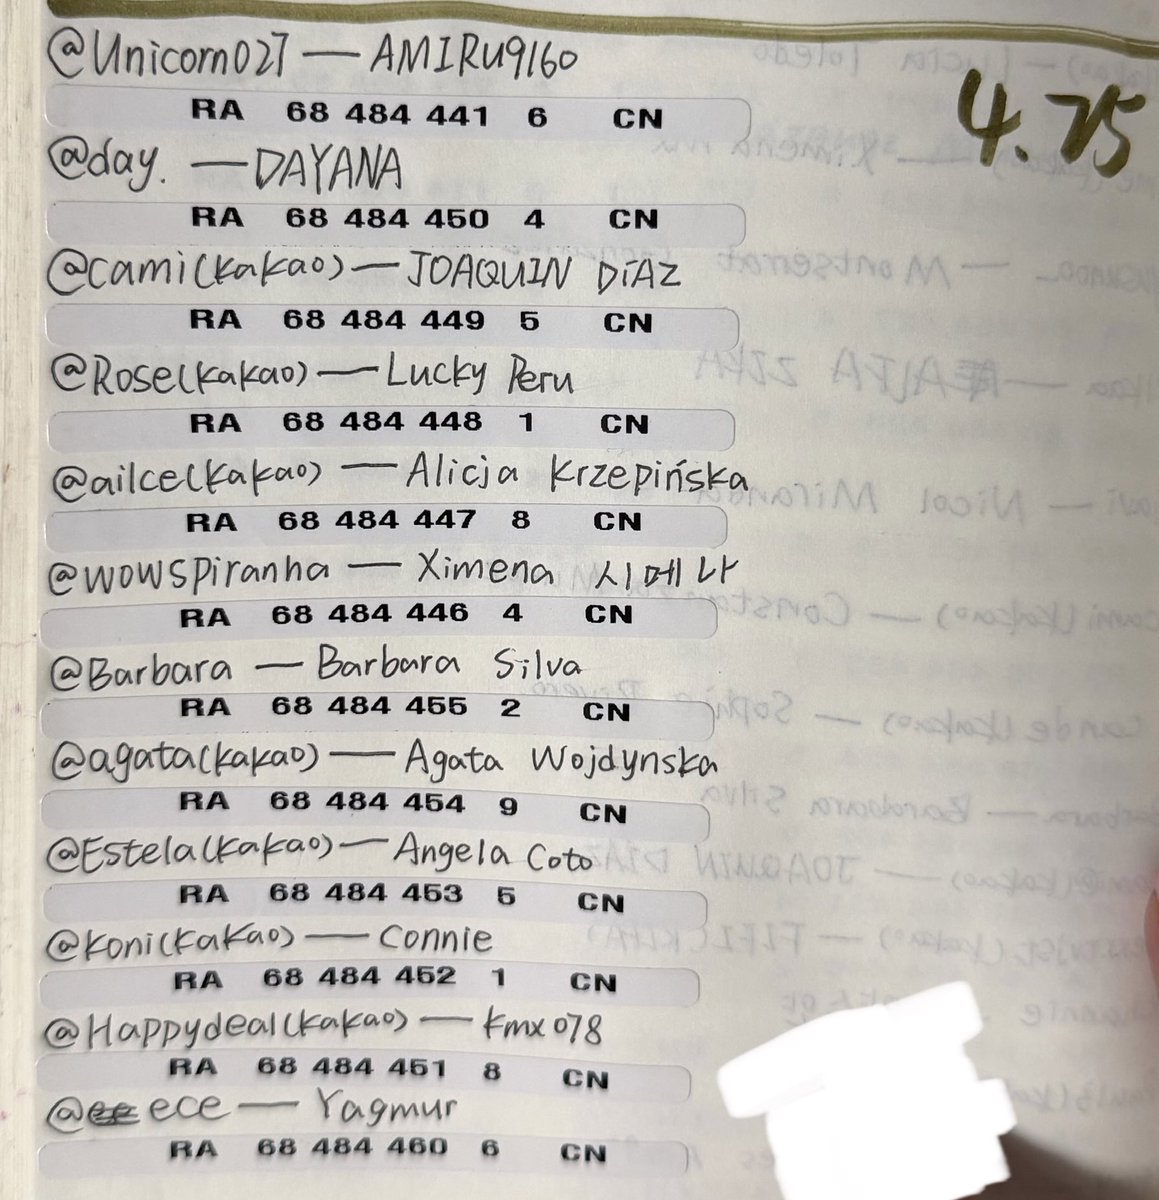 @Unicorn027 — AMIRU9160
4.25
RA 68 484 441 6 CN
@day. — DAYANA
RA 68 484 450 4 CN
@cami(kakao) — JOAQUIN DíAZ
RA 68 484 449 5 CN
@Rose(kakao) — Lucky Peru
RA 68 484 448 1 CN
@ailce(kakao) — Alicja Krzepińska
RA 68 484 447 8 CN
@wowspiranha — Ximena 시메나
RA 68 484 446 4 CN
@Barbara — Barbara Silva
RA 68 484 455 2 CN
@agata(kakao) — Agata Wojdynska
RA 68 484 454 9 CN
@Estela(kakao) — Angela Coto
RA 68 484 453 5 CN
@koni(kakao) — Connie
RA 68 484 452 1 CN
@Happydeal(kakao) — kmx078
RA 68 484 451 8 CN
@ece — Yagmur
RA 68 484 460 6 CN